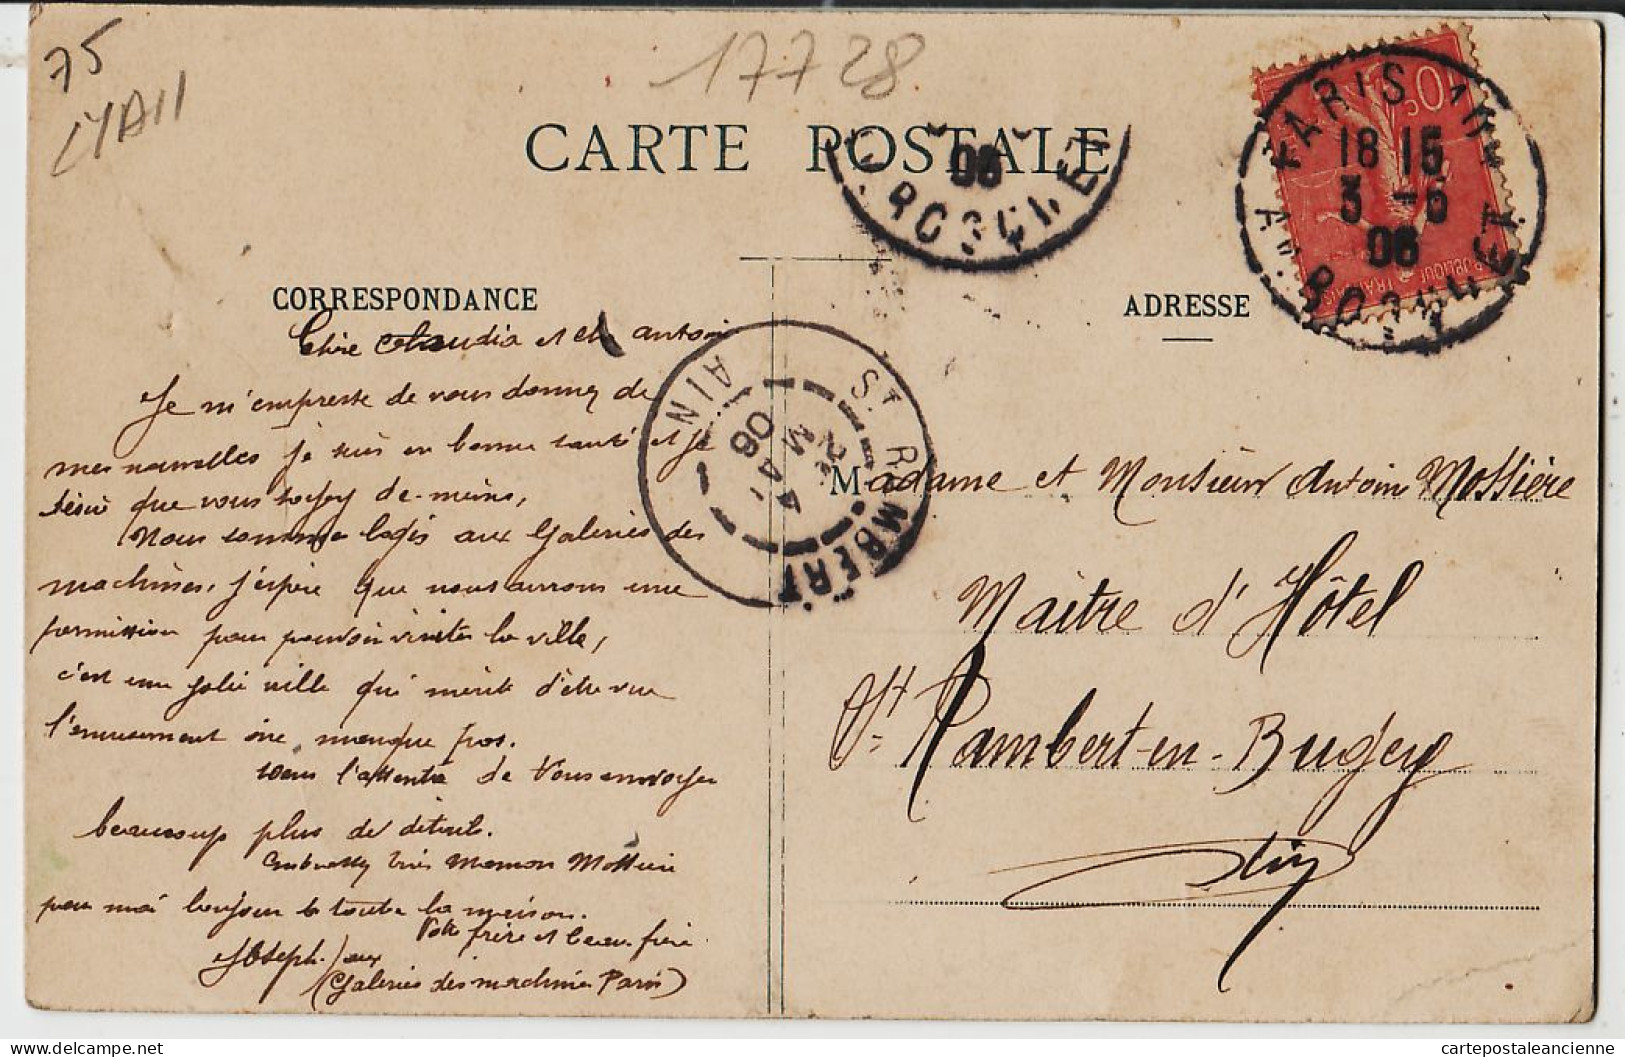 75
17728
CARTE POSTALE
PARIS
18 15
3 -5
06
R. BOSQUET
10c
06
R. BOSQUET
CORRESPONDANCE
ADRESSE
Chère Claudia et ch antoin
Je m'empresse de vous donnez de
mes nouvelles je suis en bonne santé et je
désir que vous soyez de-mêms,
Nous somme logés aux Galeries des
machines, j'espère que nous aurrons une
permission pour pouvoir visiter la ville,
c'est une jolie ville qui mérite d'être vue
l'amusement ne manque pas.
dans l'attente de Vous envoyer
beaucoup plus de détails.
Embrassez bien Maman Mossière
pour moi bonjour à toute la maison.
Votre frère et beau frère
Joseph. aux
(Galeries des machines Paris)
ST RAMBERT
4 MAI
06
AIN
Madame et Monsieur Antoin Mossière
Maître d'Hôtel
St Rambert-en-Bugey
Ain
delcampe.net
cartepostaleancienne